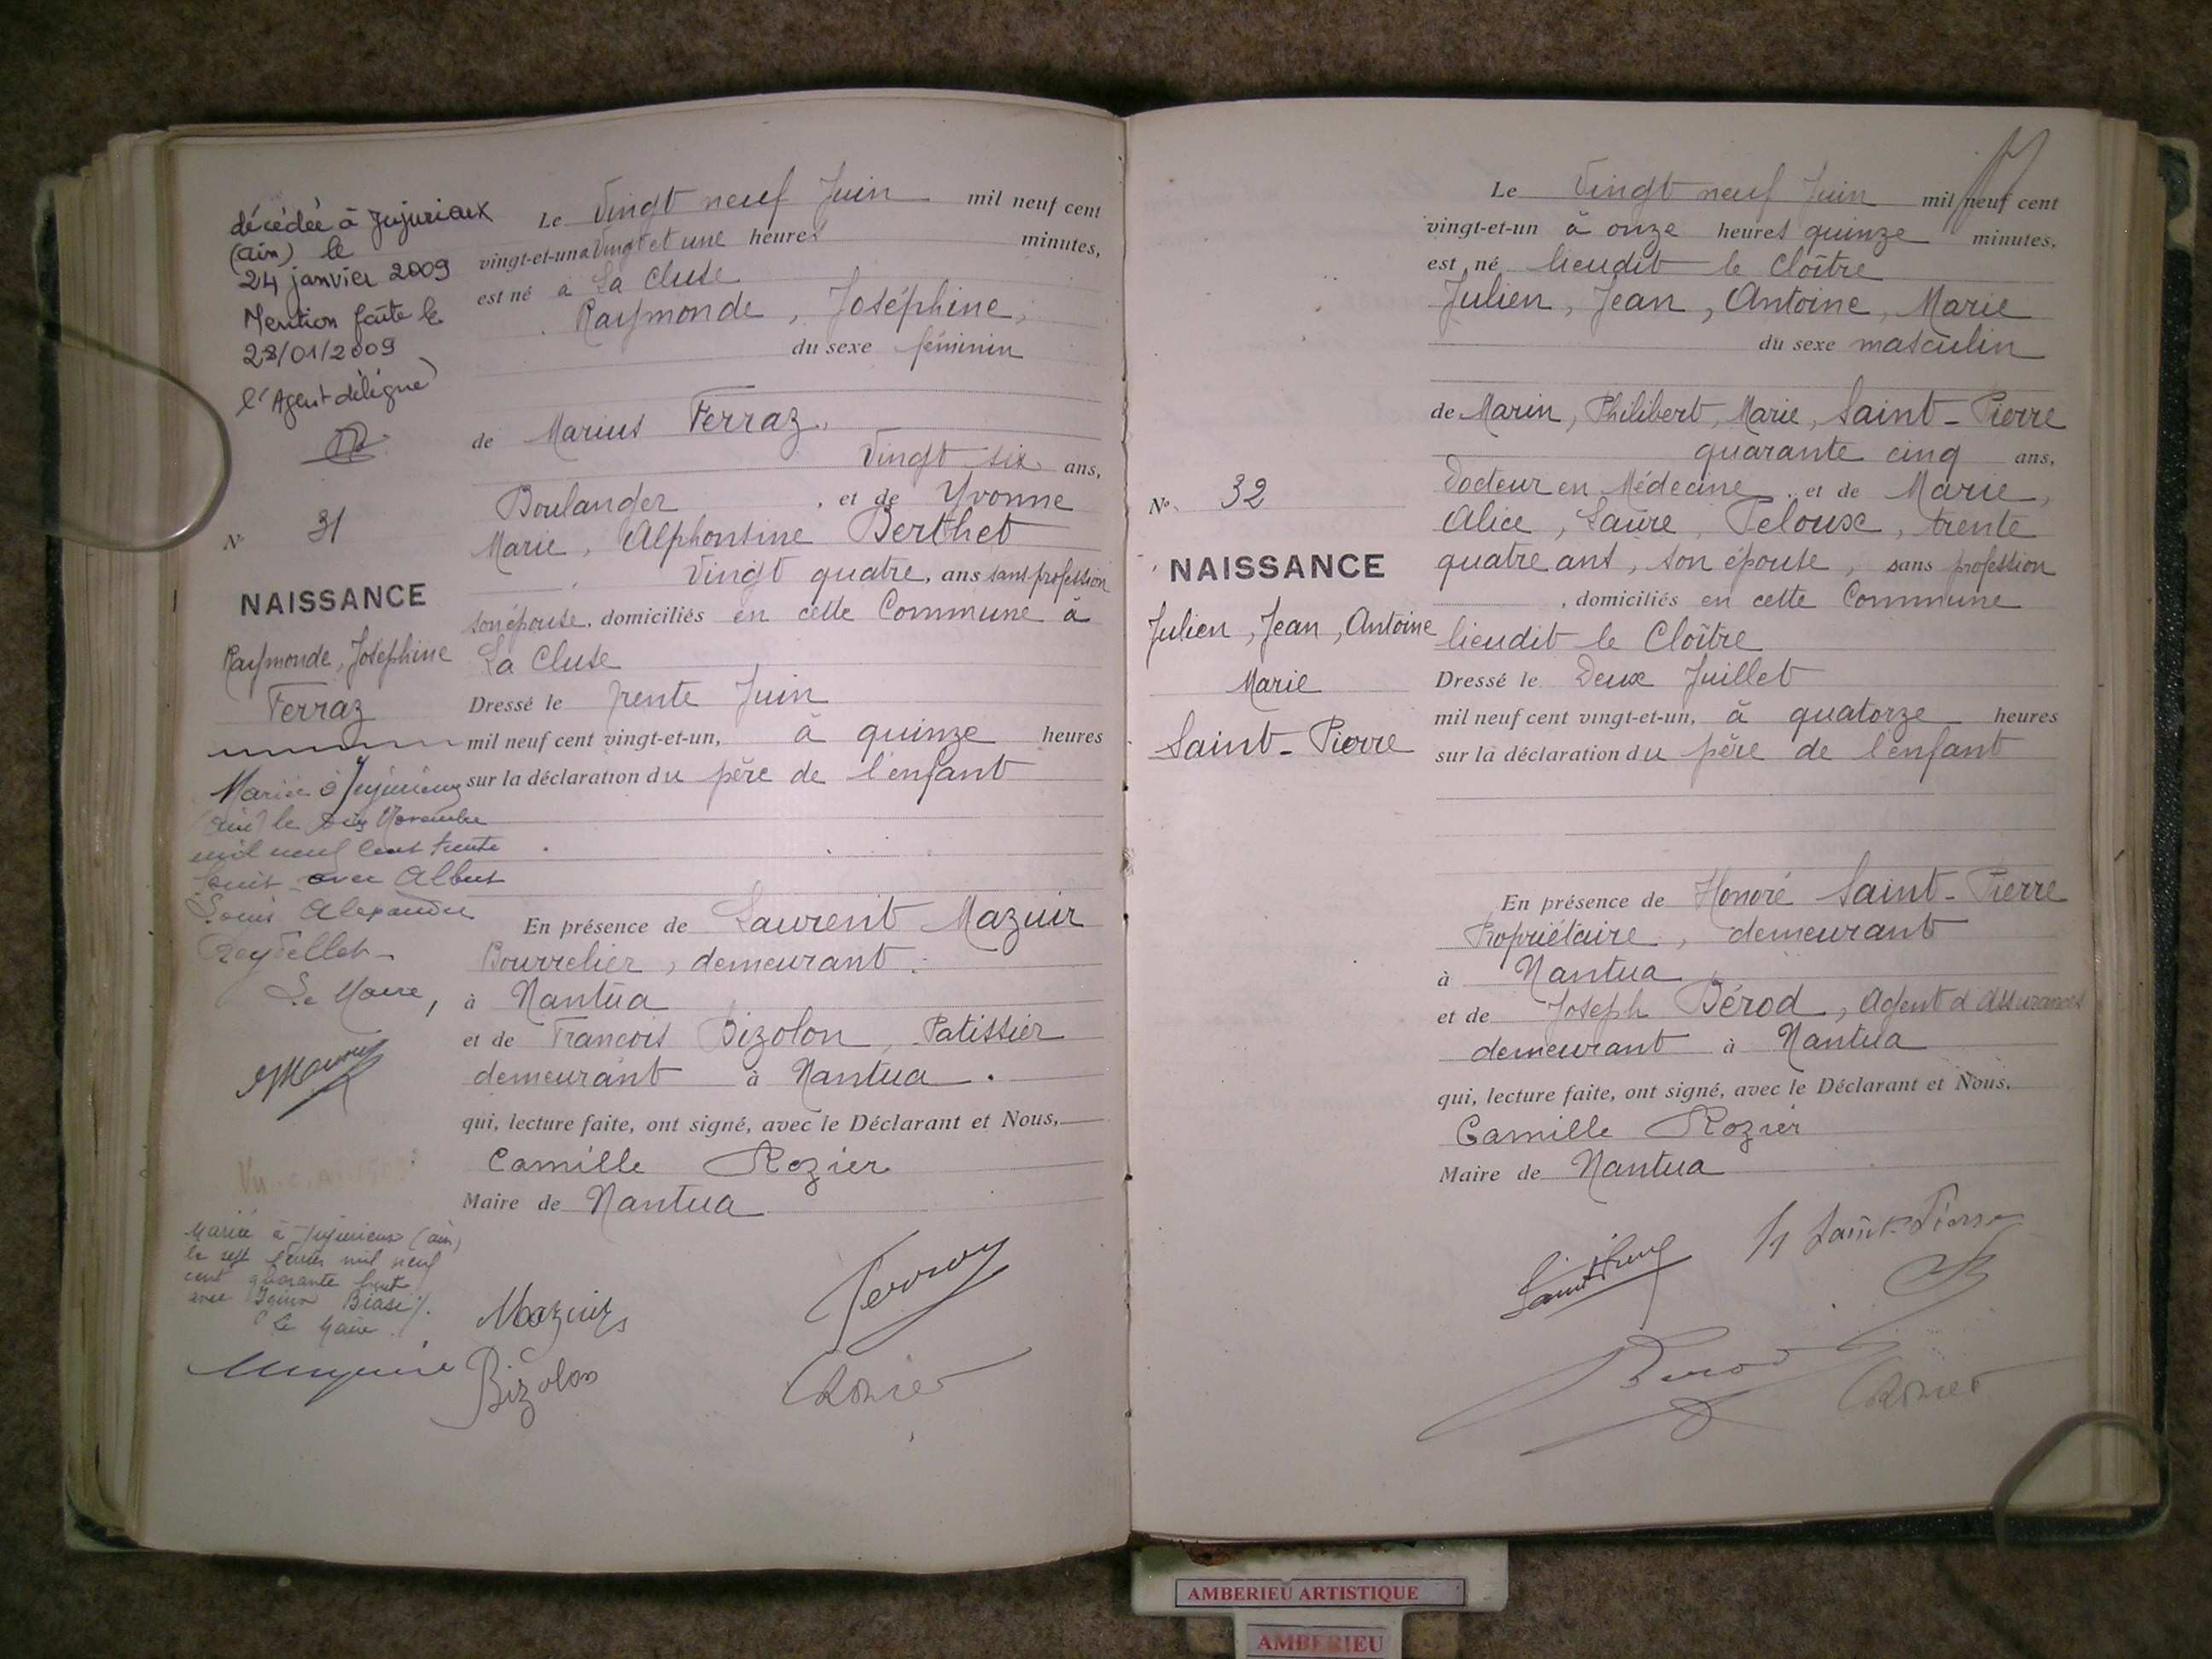 décédée à Jujurieux
(Ain) le
24 janvier 2009
Mention faite le
28/01/2009
l'Agent délégué
N° 31
NAISSANCE
Raymonde, Joséphine
Ferraz
Mariée à Jujurieux
(Ain) le six Novembre
mil neuf cent trente
huit avec Albert
Louis Alexandre
Reydellet
Le Maire,
Mariée à Jujurieux (Ain)
le sept février mil neuf
cent quarante huit
avec Biasi
Le Maire
Le Vingt neuf Juin mil neuf cent
vingt-et-un à Vingt et une heures minutes,
est né à La Cluse
Raymonde, Joséphine,
du sexe féminin
de Marius Ferraz,
Vingt six ans,
Boulanger, et de Yvonne
Marie, Alphonsine Berthet
Vingt quatre, ans sans profession
son épouse, domiciliés en cette Commune à
La Cluse
Dressé le trente Juin
mil neuf cent vingt-et-un, à quinze heures
sur la déclaration du père de l'enfant
En présence de Laurent Mazuir
Bourrelier, demeurant
à Nantua
et de Francois Bizolon, Patissier
demeurant à Nantua.
qui, lecture faite, ont signé, avec le Déclarant et Nous,
Camille Rozier
Maire de Nantua
Mazuir
Ferraz
Bizolon
Rozier
N° 32
NAISSANCE
Julien, Jean, Antoine
Marie
Saint-Pierre
Le Vingt neuf Juin mil neuf cent
vingt-et-un à onze heures quinze minutes,
est né lieudit le Cloître
Julien, Jean, Antoine, Marie
du sexe masculin
de Marin, Philibert, Marie, Saint-Pierre
quarante cinq ans,
Docteur en Médecine, et de Marie,
Alice, Laure, Teloux, trente
quatre ans, son épouse, sans profession
, domiciliés en cette Commune
lieudit le Cloître
Dressé le Deux Juillet
mil neuf cent vingt-et-un, à quatorze heures
sur la déclaration du père de l'enfant
En présence de Honoré Saint-Pierre
Propriétaire, demeurant
à Nantua
et de Joseph Bérod, Agent d'Assurances
demeurant à Nantua
qui, lecture faite, ont signé, avec le Déclarant et Nous,
Camille Rozier
Maire de Nantua
Saint-Pierre
H Saint-Pierre
Berod
Rozier
AMBERIEU ARTISTIQUE
AMBERIEU